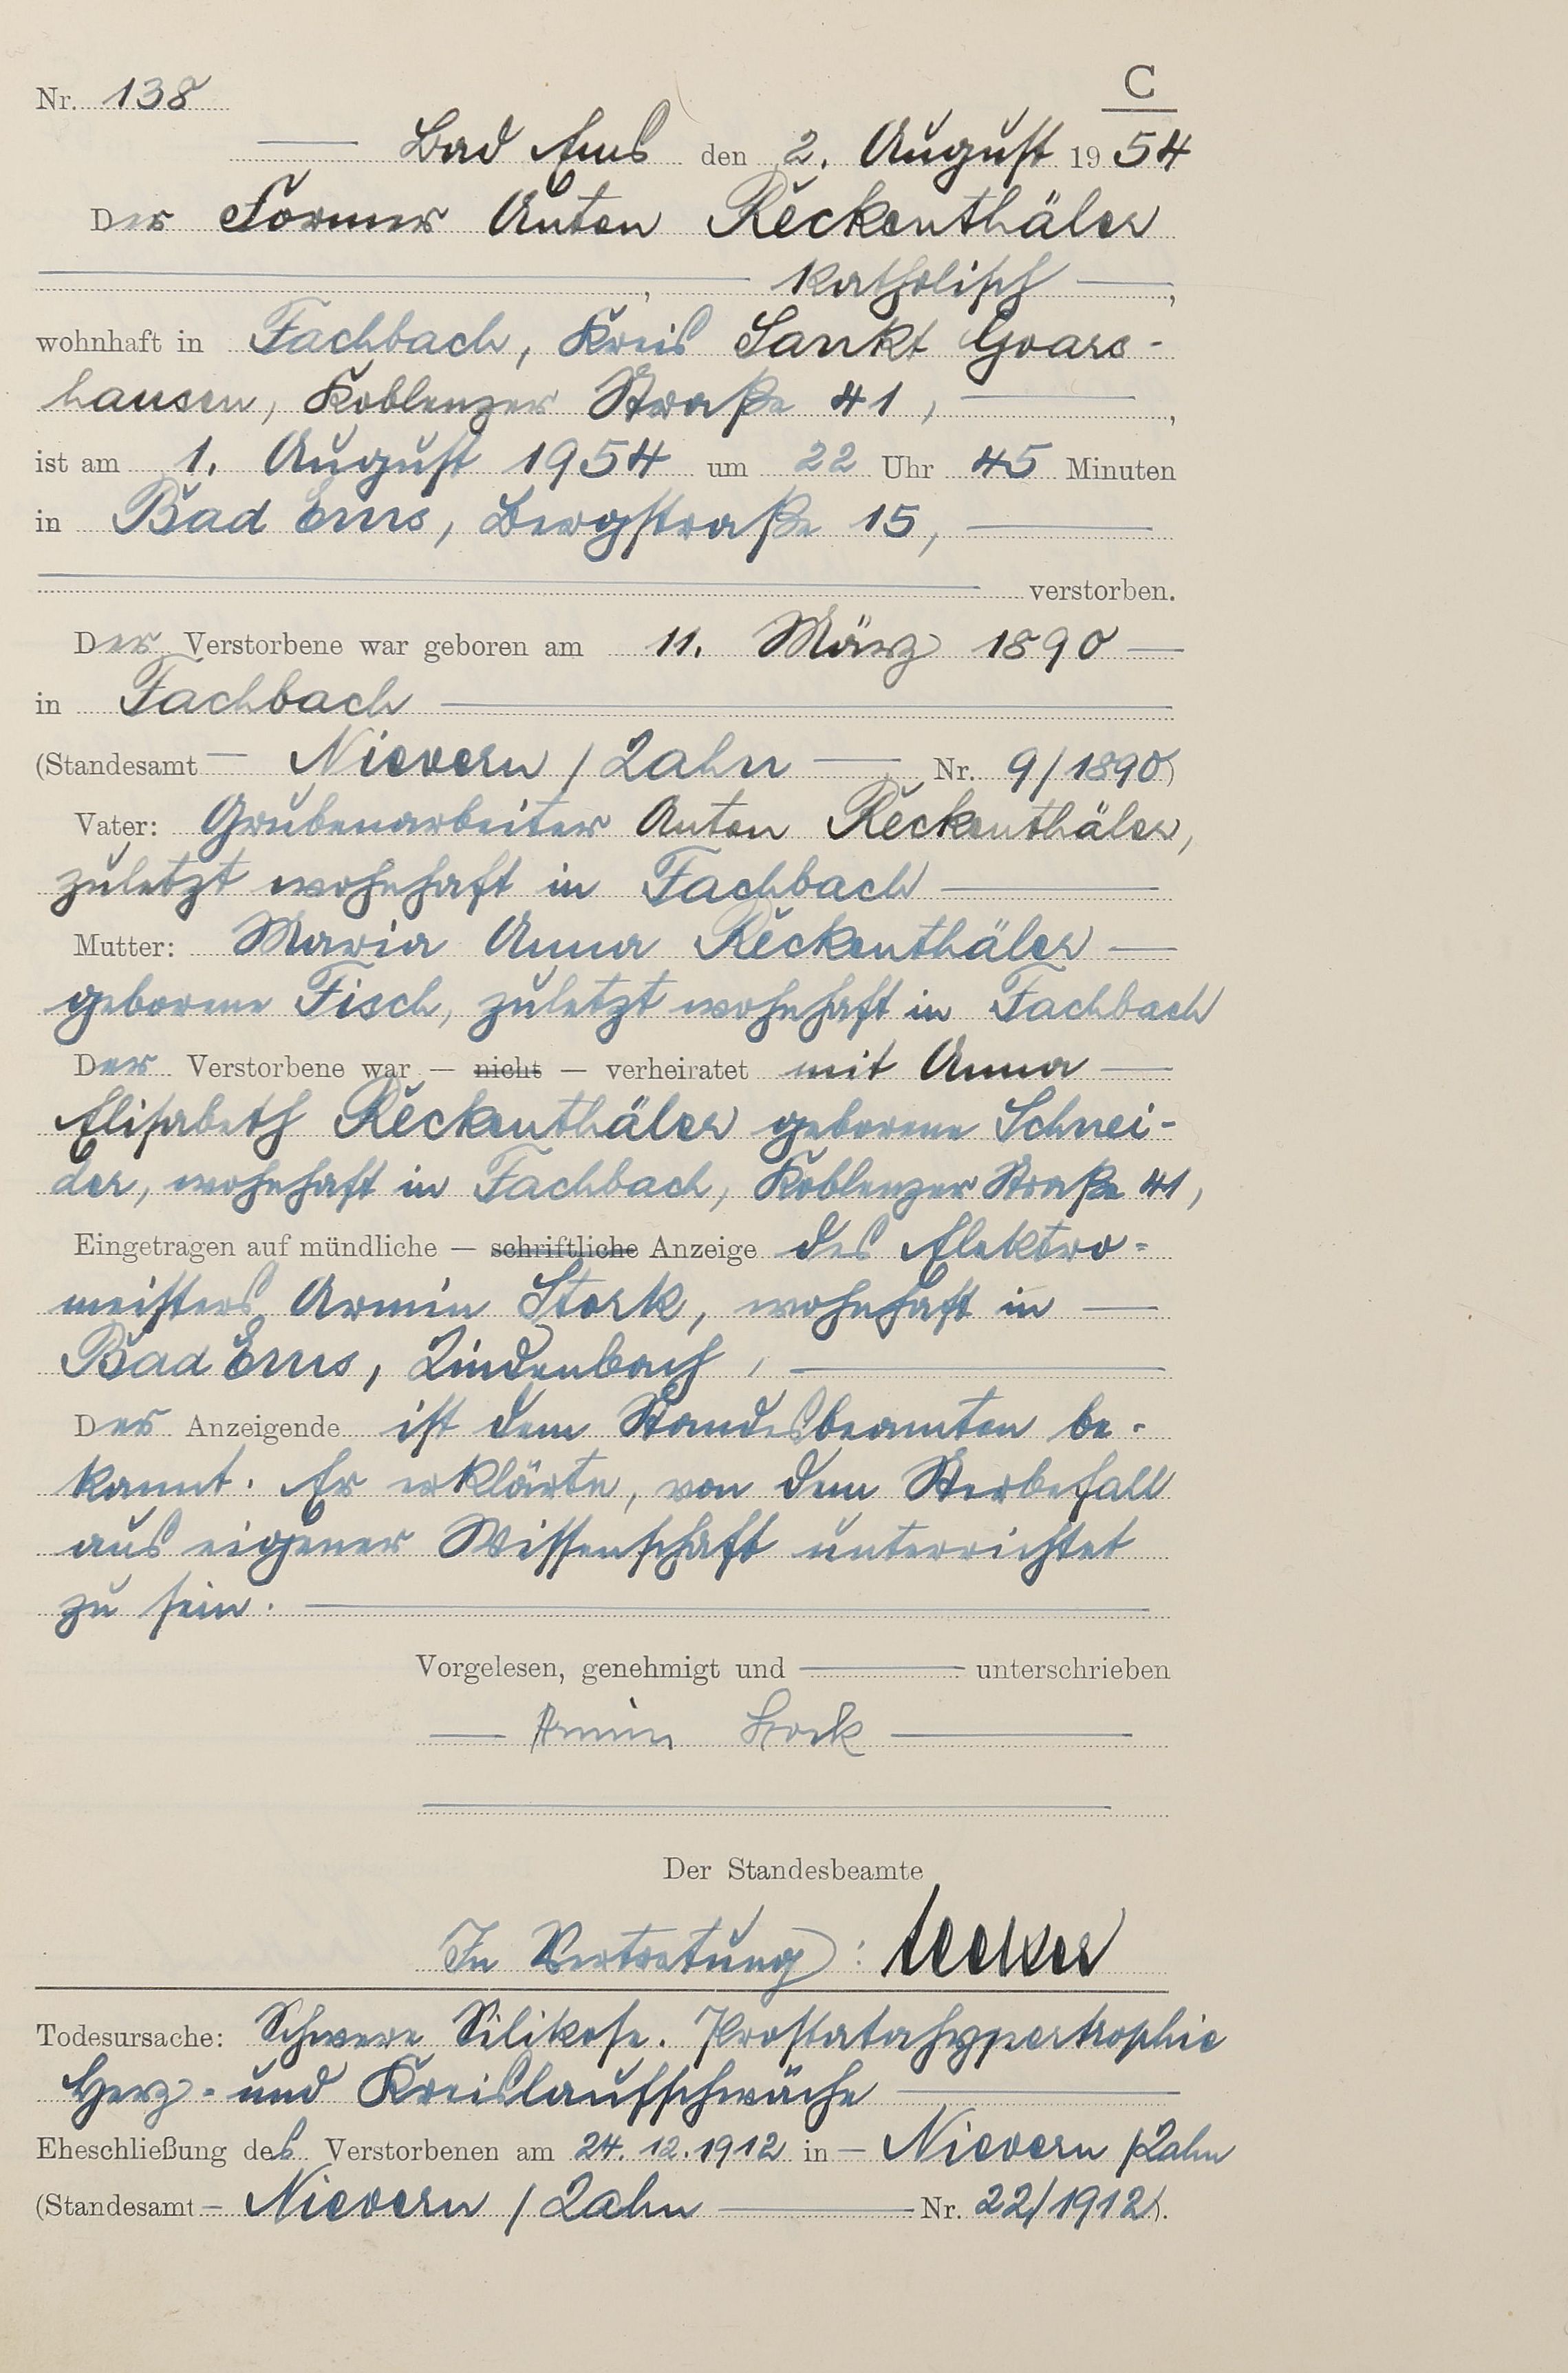 C
Nr. 138
Bad Ems den 2. August 1954
Der Former Anton Reckenthäler
, katholisch ,
wohnhaft in Fachbach, Kreis Sankt Goars-
hausen, Koblenzer Straße 41, ,
ist am 1. August 1954 um 22 Uhr 45 Minuten
in Bad Ems, Bergstraße 15,
verstorben.
Der Verstorbene war geboren am 11. März 1890
in Fachbach
(Standesamt Nievern / Lahn Nr. 9/1890)
Vater: Grubenarbeiter Anton Reckenthäler,
zuletzt wohnhaft in Fachbach
Mutter: Maria Anna Reckenthäler
geborene Fisch, zuletzt wohnhaft in Fachbach
Der Verstorbene war — nicht — verheiratet mit Anna
Elisabeth Reckenthäler geborene Schnei-
der, wohnhaft in Fachbach, Koblenzer Straße 41,
Eingetragen auf mündliche — schriftliche Anzeige des Elektro-
meisters Armin Stork, wohnhaft in
Bad Ems, Lindenbach,
Der Anzeigende ist dem Standesbeamten be-
kannt. Er erklärte, von dem Sterbefall
aus eigener Wissenschaft unterrichtet
zu sein.
Vorgelesen, genehmigt und unterschrieben
Armin Stork
Der Standesbeamte
In Vertretung:
Todesursache: Schwere Silikose. Prostatahypertrophie
Herz- und Kreislaufschwäche
Eheschließung des Verstorbenen am 24.12.1912 in Nievern / Lahn
(Standesamt Nievern / Lahn Nr. 22/1912).